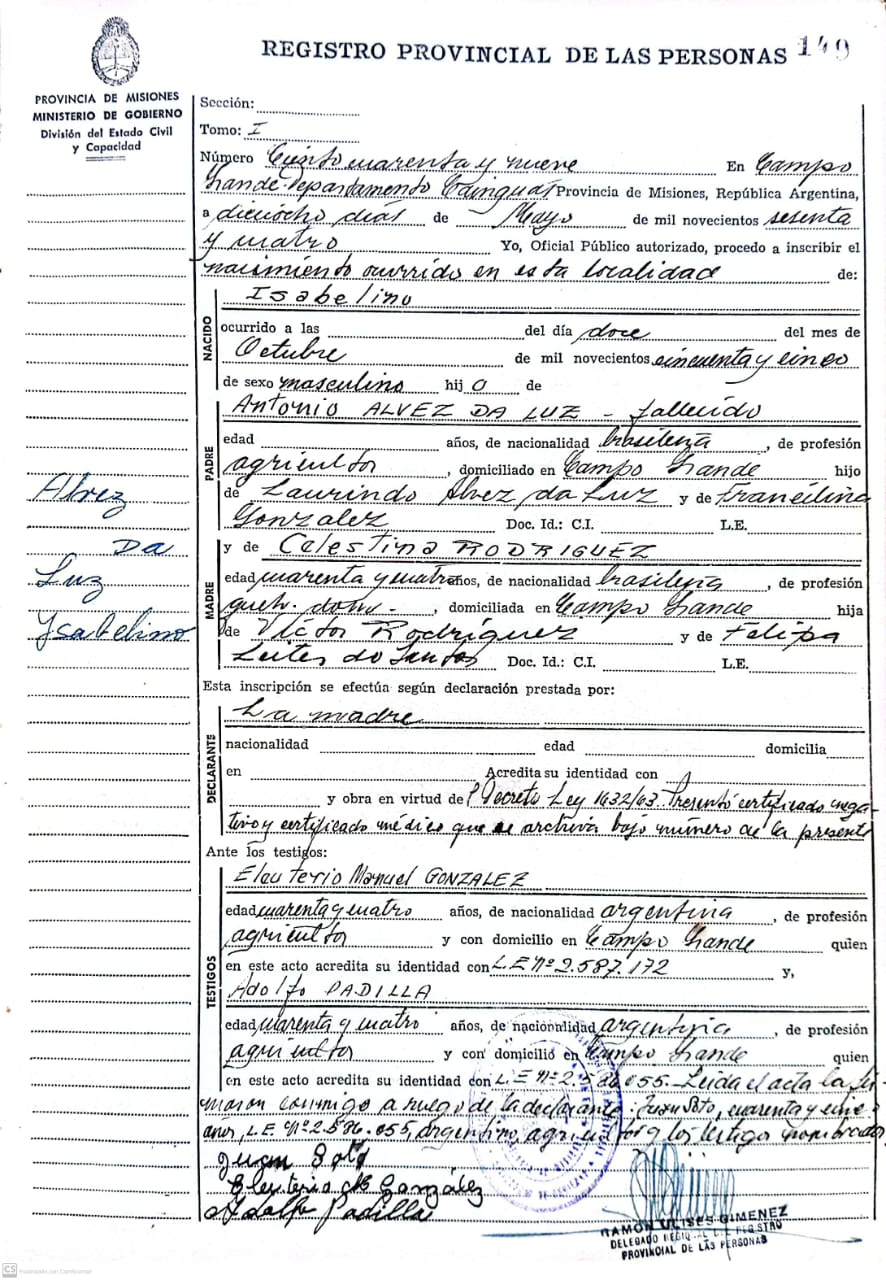 REGISTRO PROVINCIAL DE LAS PERSONAS 149
PROVINCIA DE MISIONES
MINISTERIO DE GOBIERNO
División del Estado Civil
y Capacidad
Sección:
Tomo: I
Número Ciento cuarenta y nueve En Campo
Grande. Departamento Cainguás Provincia de Misiones, República Argentina,
a dieciocho días de Mayo de mil novecientos sesenta
y cuatro Yo, Oficial Público autorizado, procedo a inscribir el
nacimiento ocurrido en esta localidad de:
NACIDO
Isabelino
ocurrido a las del día doce del mes de
Octubre de mil novecientos cincuenta y cinco
de sexo masculino hij o de
PADRE
Antonio ALVEZ DA LUZ - fallecido
edad años, de nacionalidad brasileña, de profesión
agricultor, domiciliado en Campo Grande hijo
de Laurindo Alvez da Luz y de Francilina
Gonzalez Doc. Id.: C.I. L.E.
MADRE
y de Celestina RODRIGUEZ
edad cuarenta y cuatro años, de nacionalidad brasileña, de profesión
queh. dom.-, domiciliada en Campo Grande hija
de Víctor Rodríguez y de Felipa
Leites do Santos Doc. Id.: C.I. L.E.
Alvez
Da
Luz
Ysabelino
Esta inscripción se efectúa según declaración prestada por:
DECLARANTE
La madre
nacionalidad edad domicilia
en Acredita su identidad con
y obra en virtud de Decreto Ley 1632/63. Presentó certificado nega-
tivo y certificado médico que se archiva bajo número de la presente
Ante los testigos:
TESTIGOS
Eleuterio Manuel GONZALEZ
edad cuarenta y cuatro años, de nacionalidad argentina, de profesión
agricultor y con domicilio en Campo Grande quien
en este acto acredita su identidad con L.E Nº 2.587.172 y,
Adolfo PADILLA
edad cuarenta y cuatro años, de nacionalidad argentina, de profesión
agricultor y con domicilio en Campo Grande quien
en este acto acredita su identidad con L.E Nº 2. 055. Leida el acta la fir
maron conmigo a ruego de la declarante: Juan Soto, cuarenta y cinco
años, L.E. Nº 2.586.055, argentino, agricultor y los testigos nombrados
Juan Soto
Eleuterio M González
Adolfo Padilla
RAMON ULISES GIMENEZ
DELEGADO REGIONAL DEL REGISTRO
PROVINCIAL DE LAS PERSONAS
CS Escaneado con CamScanner